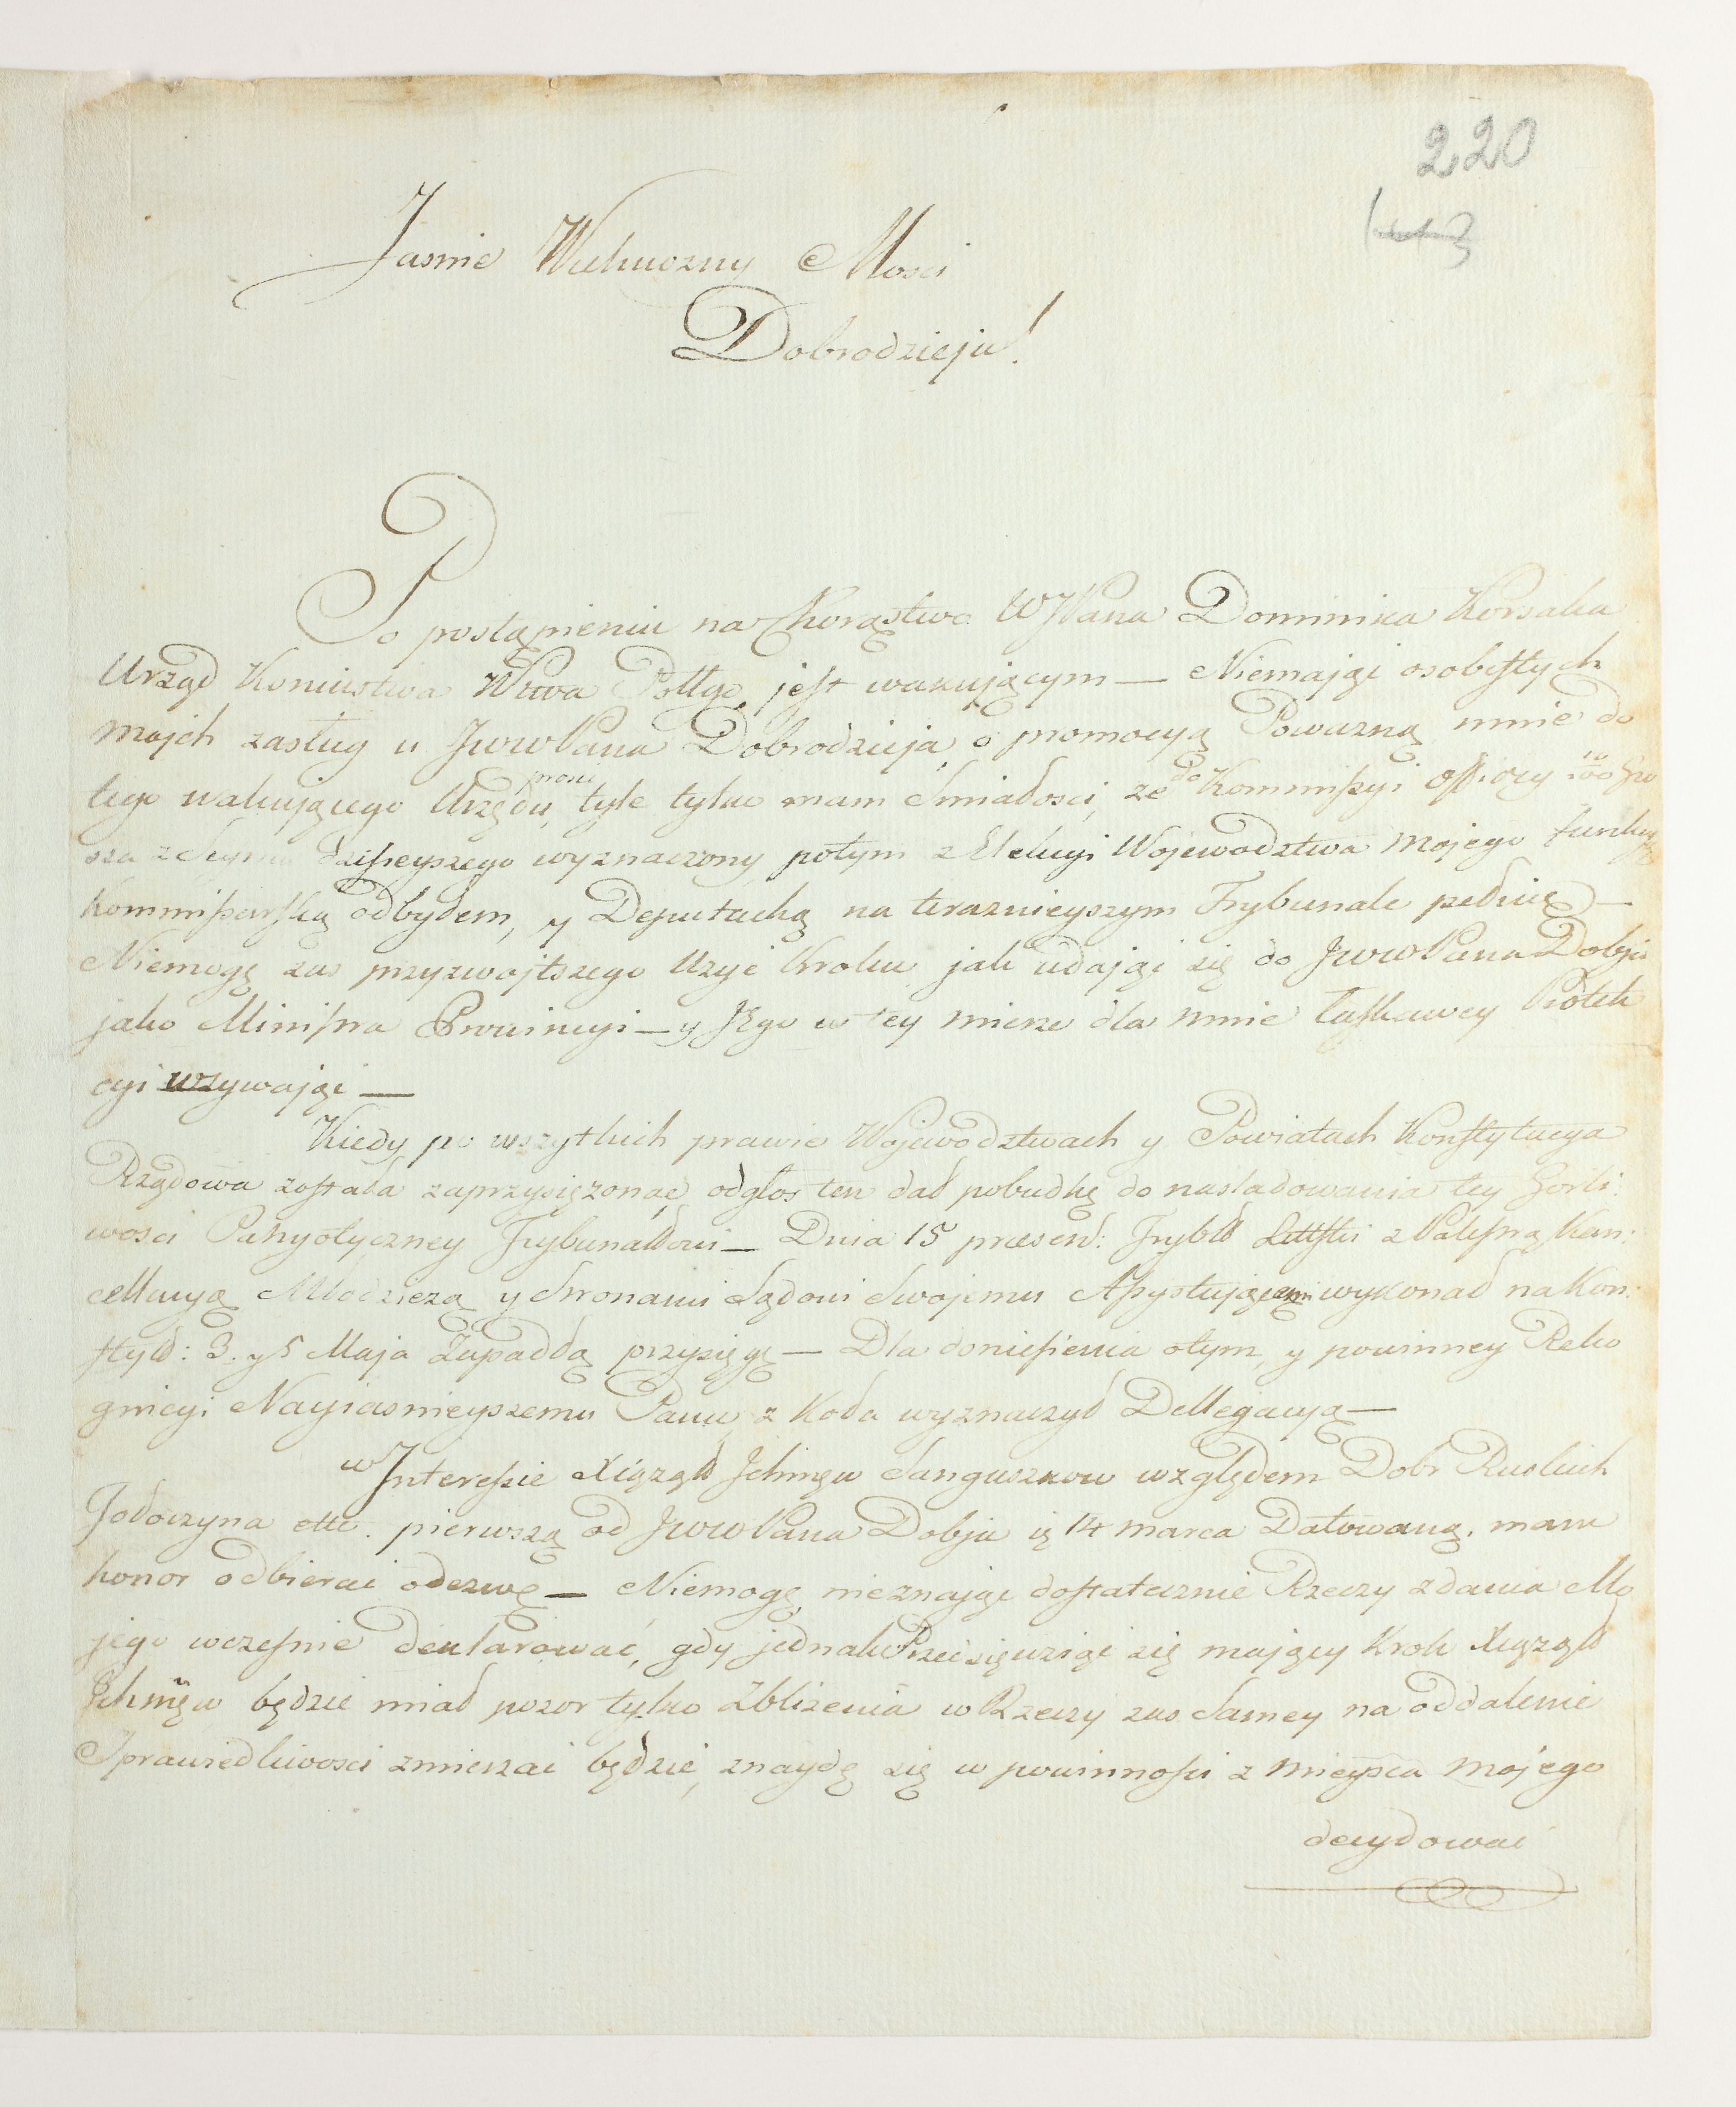 220
Jasnie Wielmozny Mosci
Dobrodzieju!
Po postąpieniu na Chorąstwo WJPana Dominika Korsaka
Urząd Koniustwa Wztwa Połłgo jest wakującym — Niemając osobistych
mojch zasług u JwwPana Dobrodzieja, o promocyą Powazną mnie do
tego wakującego Urzędu, prosić tyle tylko mam Smiałosci, ze do Kommissyi offiary 10
sza z Seymu dzisieyszego wyznaczony potym z Elekcyi Wojewodztwa mojego funkcyą
Kommissarską odbyłem, y Deputacką na teraznieyszym Trybunale pełnię —
Niemogę zas przyzwojtszego Uzyć Kroku jak udając się do JwwPana Dobja
jako Ministra Prowincyi — y Jego w tey mierze dla mnie łaskawey Protek
cyi wzywając —
Kiedy po wszytkich prawie Wojewodztwach y Powiatach Konstytucya
Rządowa została zaprzysięzoną, odgłos ten dał pobudkę do nasladowania tey Gorli:
wosci Patryotyczney Trybunałłowi — Dnia 15 praesen: Trybłł Littski z Palestrą Kan:
cellaryą Młodziezą y Stronami Sądowi Swojemu Assystującemi wykonał na Kon:
stył: 3. y 5 Maja Zapadłą przysięgę — Dla doniesienia otym, y powinney Reko
gnicyi Nayjasnieyszemu Panu z Koła wyznaczył Dellegacyą —
w Interessie Xiąząt Jchmęw Sanguszkow względem Dobr Ruskich
Jołoczyna ette. pierwszą od JwwPana Dobja 14 marca Datowaną, mam
honor odbierać odezwę — Niemogę, nieznając dostatecznie Rzeczy zdania Mo
jego wczesnie deklarować, gdy jednak Przedsięwziąć się mający Krok Xiąząt
Jchmęw będzie miał pozor tylko Zblizenia w Rzeczy zas Samey na oddalenie
Sprawiedliwosci zmierzać będzie, znaydę się w powinnosci z mieysca mojego
decydować